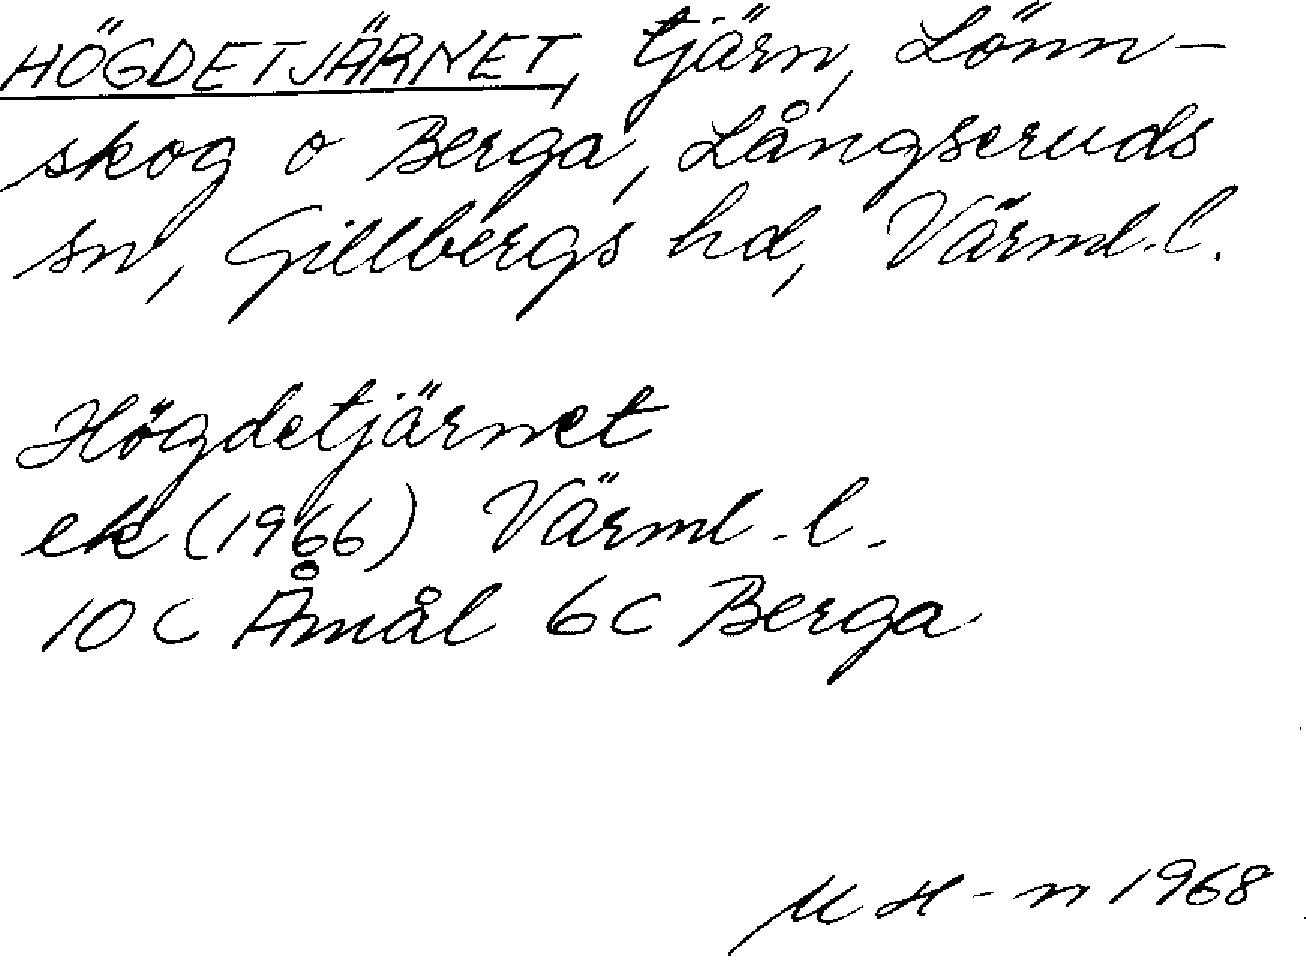 HÖGDETJÄRNET, tjärn, Lönn-
skog o Berga, Långseruds
sn, Gillbergs hd, Värml. l.
Högdetjärnet
ek (1966) Värml. l.
10 C Åmål 6c Berga
M H-n 1968